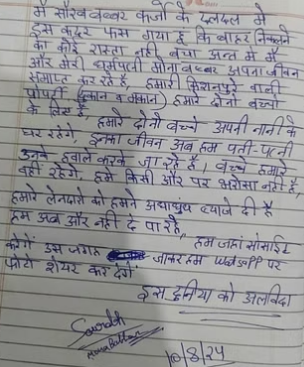 मैं सौरव बब्बर कर्जो के दलदल में
इस कदर फस गया है कि बाहर निकलने
का कोई रास्ता नही बचा अन्त में मैं
और मेरी धर्मपत्नी मोना बब्बर अपना जीवन
समाप्त कर रहे है, हमारी किशनपुरे वाली
प्रोपर्टी (दुकान व मकान) हमारे दोनो बच्चो
के लिए है, हमारे दोनो बच्चे अपनी नानी के
घर रहेगे, इनका जीवन अब हम पती-पत्नी
उनके हवाले करके जा रहे है। बच्चे हमारे
वही रहेगे, हमे किसी और पर भरोसा नही है,
हमारे लेनदारो को हमने अंधाधुंध ब्याज दी है
हम अब और नही दे पा रहे, हम जहां सोसाईड
करेगें उस जगह जाकर हम WhatsApp पर
फोटो शेयर कर देगें
इस दुनिया को अलविदा
Saurabh
10/8/24